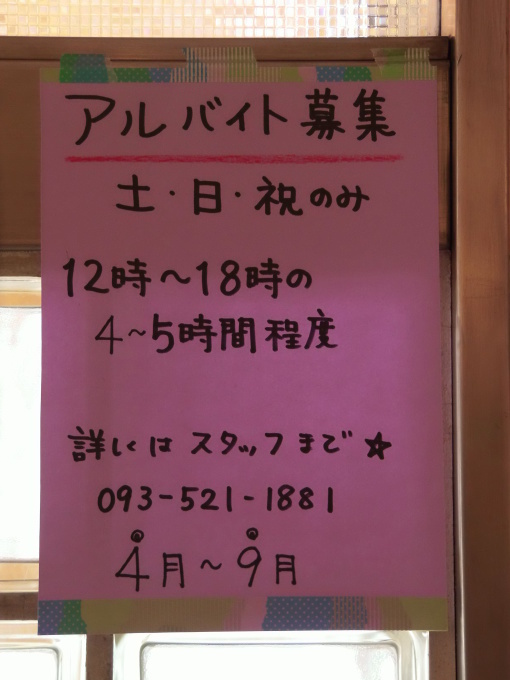 アルバイト募集
土・日・祝のみ
12時～18時の
4～5時間程度
詳しくはスタッフまで☆
093-521-1881
4月～9月